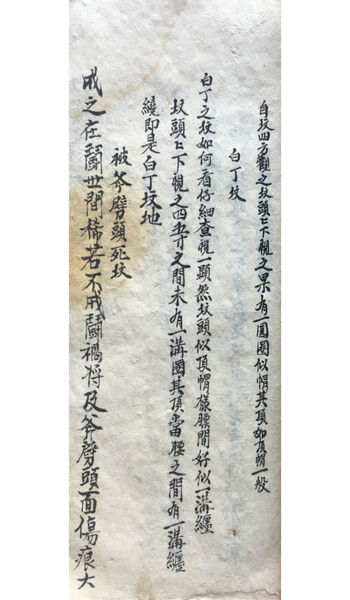 自坟四方觀之坟頭上下視之果有一圓圈似帽其頂如頂帽一般
白丁坟
白丁之坟如何看仔細查視一顯然坟頭似頂帽樣腰間好似一溝纏
坟頭上下視之四寺之間未有一溝圈其頂當腰之間有一溝纏
繞即是白丁坟地
被斧劈頭死坟
戒之在鬭世間稀若不戒鬭禍将及斧劈頭面傷痕大